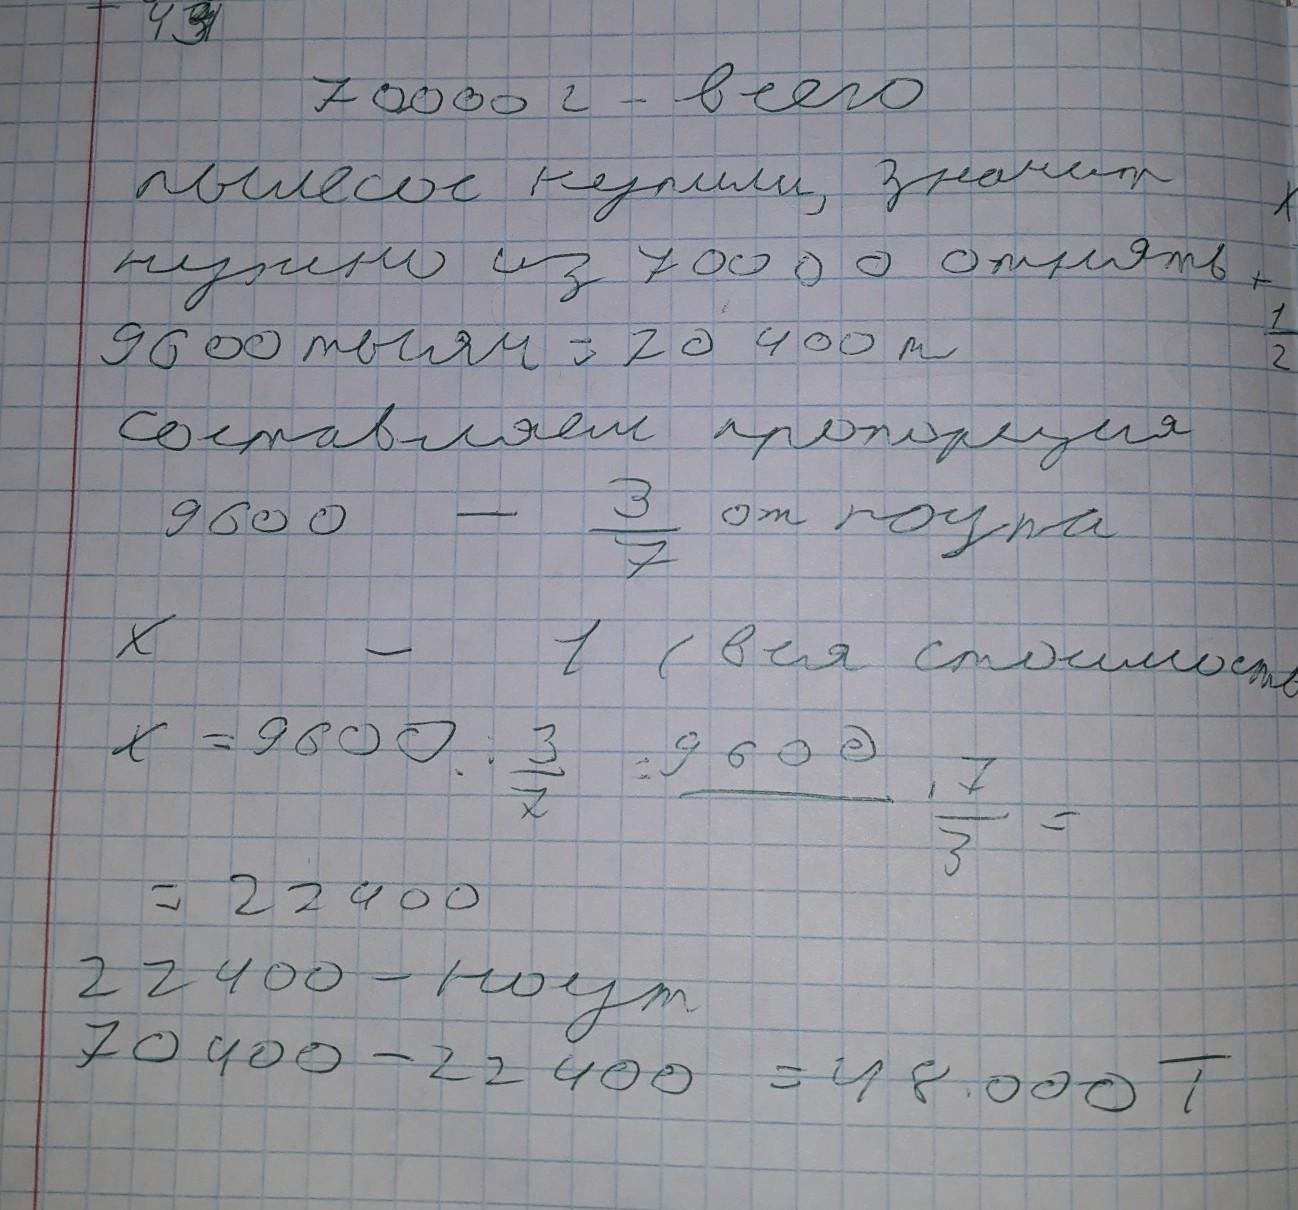 70000 г - всего
пылесос купили, значит
нужно из 70000 отнять
9600 тысяч = 70 400 т
Составляем пропорция
9600 - 3/7 от ноута
x - 1 (вся стоимость
x = 9600 : 3/7 = 9600 . 7/3 =
= 22400
22400 - ноут
70400 - 22400 = 48.000 Т
x
+
1/2